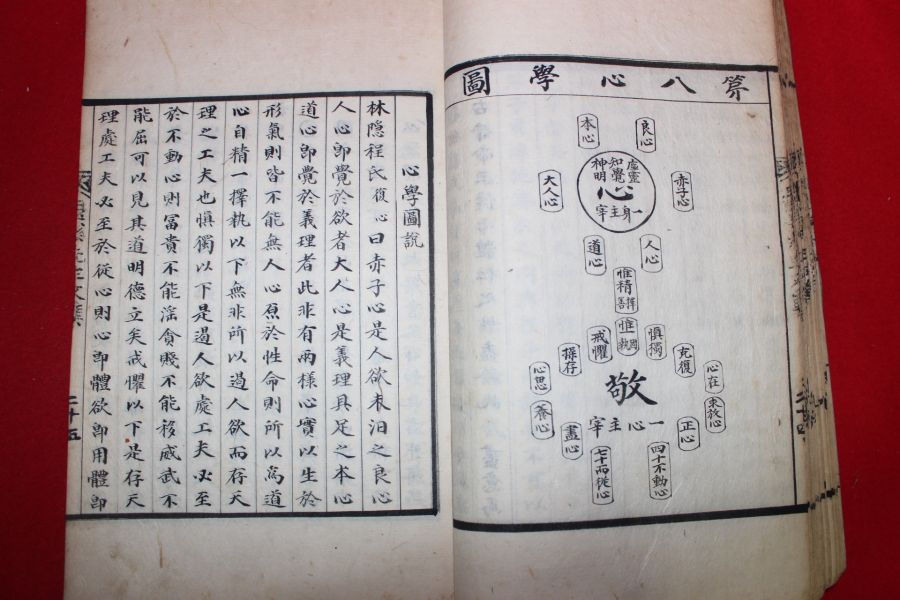 第八心學圖
良心
本心
虛靈
知覺
神明
心
一身主宰
赤子心
大人心
人心
道心
惟精
擇善
惟一
固執
愼獨
戒懼
克復
操存
心在
心思
求放心
養心
敬
一心主宰
正心
盡心
四十不動心
七十而從心
心學圖說
林隱程氏復心曰赤子心是人欲未汩之良心
人心即覺於欲者大人心是義理具足之本心
道心即覺於義理者此非有兩樣心實以生於
形氣則皆不能無人心原於性命則所以爲道
心自精一擇執以下無非所以遏人欲而存天
理之工夫也愼獨以下是遏人欲處工夫必至
於不動心則冨貴不能淫貧賤不能移威武不
能屈可以見其道明德立矣戒懼以下是存天
理處工夫必至於從心則心即體欲即用體即
二十五